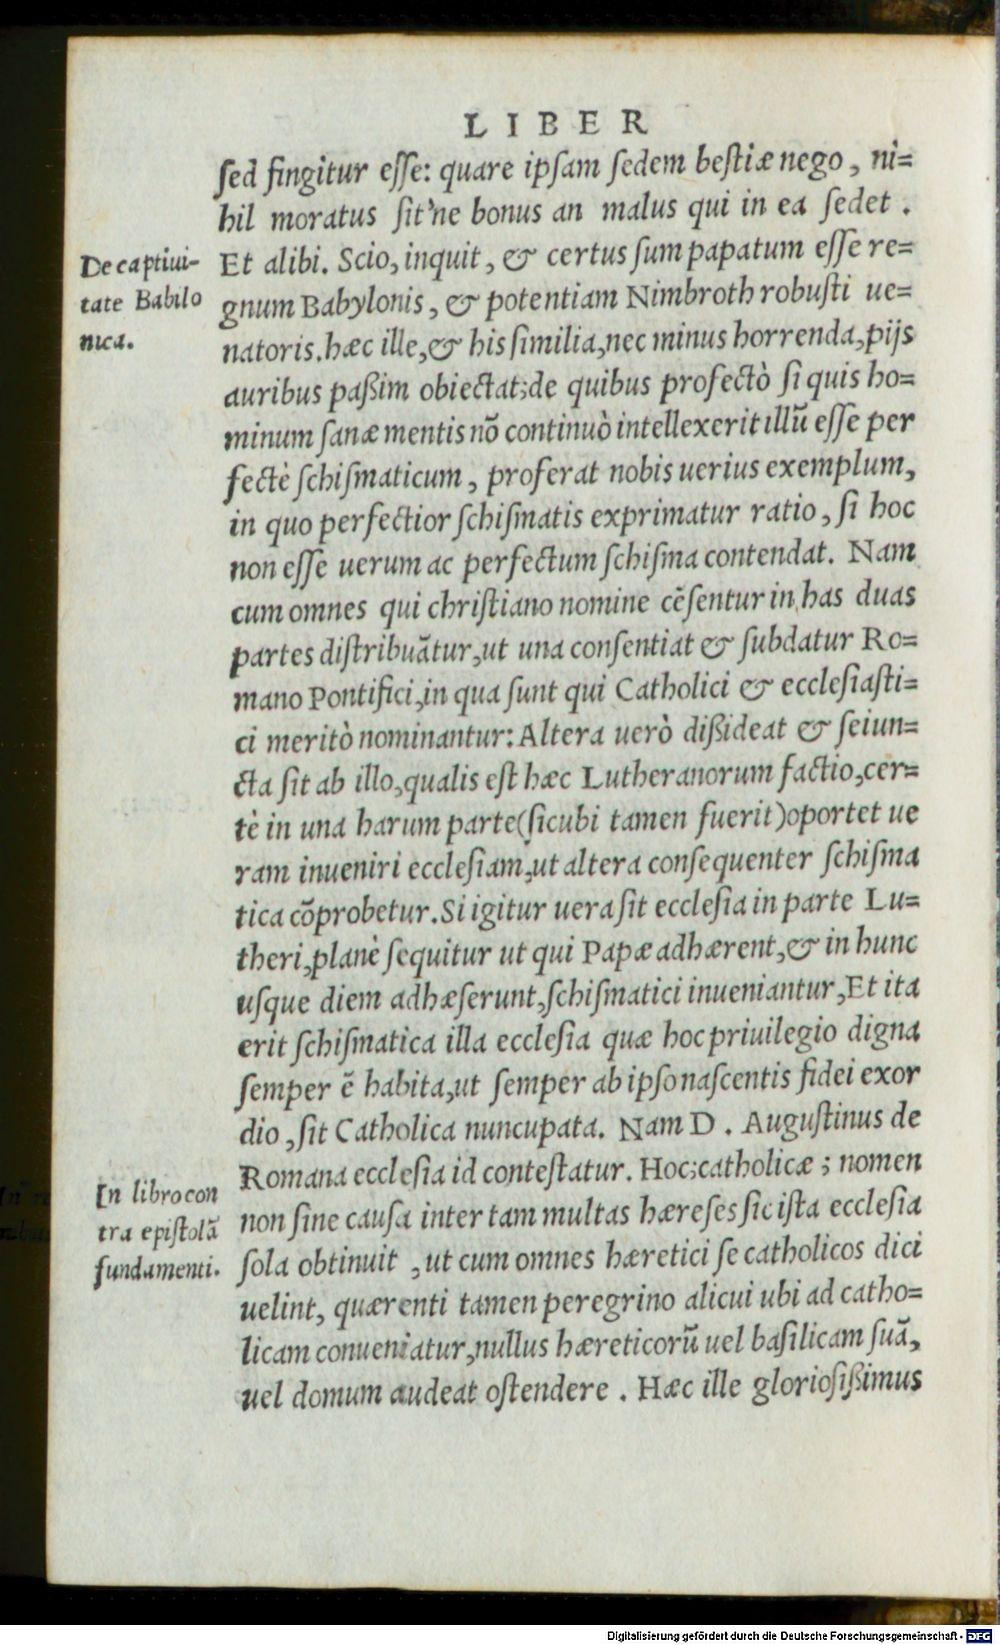 LIBER
sed fingitur esse: quare ipsam sedem bestiæ nego, ni=
hil moratus sit'ne bonus an malus qui in ea sedet.
Et alibi. Scio, inquit, & certus sum papatum esse re=
gnum Babylonis, & potentiam Nimbroth robusti ue=
natoris.hæc ille,& his similia,nec minus horrenda,pijs
auribus paßim obiectat;de quibus profectò si quis ho=
minum sanæ mentis nõ continuò intellexerit illũ esse per
fectè schismaticum, proferat nobis uerius exemplum,
in quo perfectior schismatis exprimatur ratio, si hoc
non esse uerum ac perfectum schisma contendat. Nam
cum omnes qui christiano nomine cẽsentur in has duas
partes distribuãtur,ut una consentiat & subdatur Ro=
mano Pontifici,in qua sunt qui Catholici & ecclesiasti=
ci meritò nominantur: Altera uerò dißideat & seiun=
cta sit ab illo,qualis est hæc Lutheranorum factio,cer=
tè in una harum parte(sicubi tamen fuerit)oportet ue
ram inueniri ecclesiam,ut altera consequenter schisma
tica cõprobetur. Si igitur uera sit ecclesia in parte Lu=
theri,planè sequitur ut qui Papæ adhærent,& in hunc
usque diem adhæserunt,schismatici inueniantur,Et ita
erit schismatica illa ecclesia quæ hoc priuilegio digna
semper ẽ habita,ut semper ab ipso nascentis fidei exor
dio, sit Catholica nuncupata. Nam D. Augustinus de
Romana ecclesia id contestatur. Hoc;catholicæ; nomen
non sine causa inter tam multas hæreses sic ista ecclesia
sola obtinuit, ut cum omnes hæretici se catholicos dici
uelint, quærenti tamen peregrino alicui ubi ad catho=
licam conueniatur,nullus hæreticorũ uel basilicam suã,
uel domum audeat ostendere. Hæc ille gloriosißimus
De captiui-
tate Babilo
nica.
In libro con
tra epistolã
fundamenti.
Digitalisierung gefördert durch die Deutsche Forschungsgemeinschaft - DFG